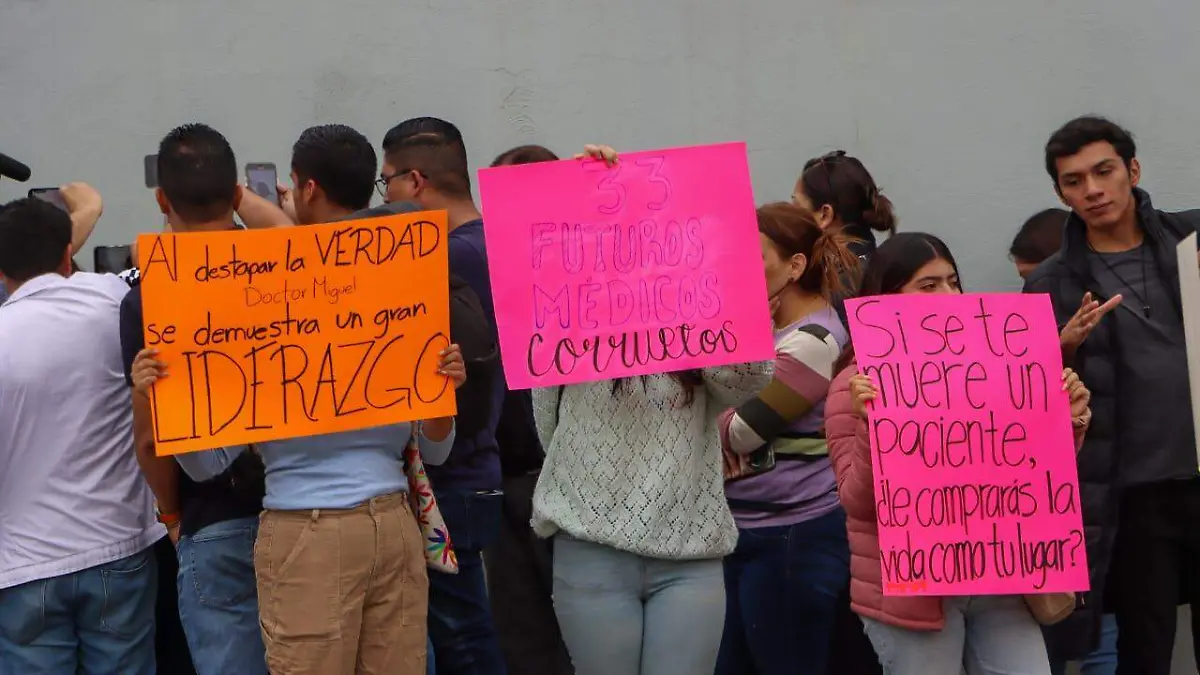 Al destapar la VERDAD
Doctor Miguel
se demuestra un gran
LIDERAZGO
33
FUTUROS
MÉDICOS
CORRUPTOS
Si se te
muere un
paciente,
¿le comprarás la
vida como tu lugar?